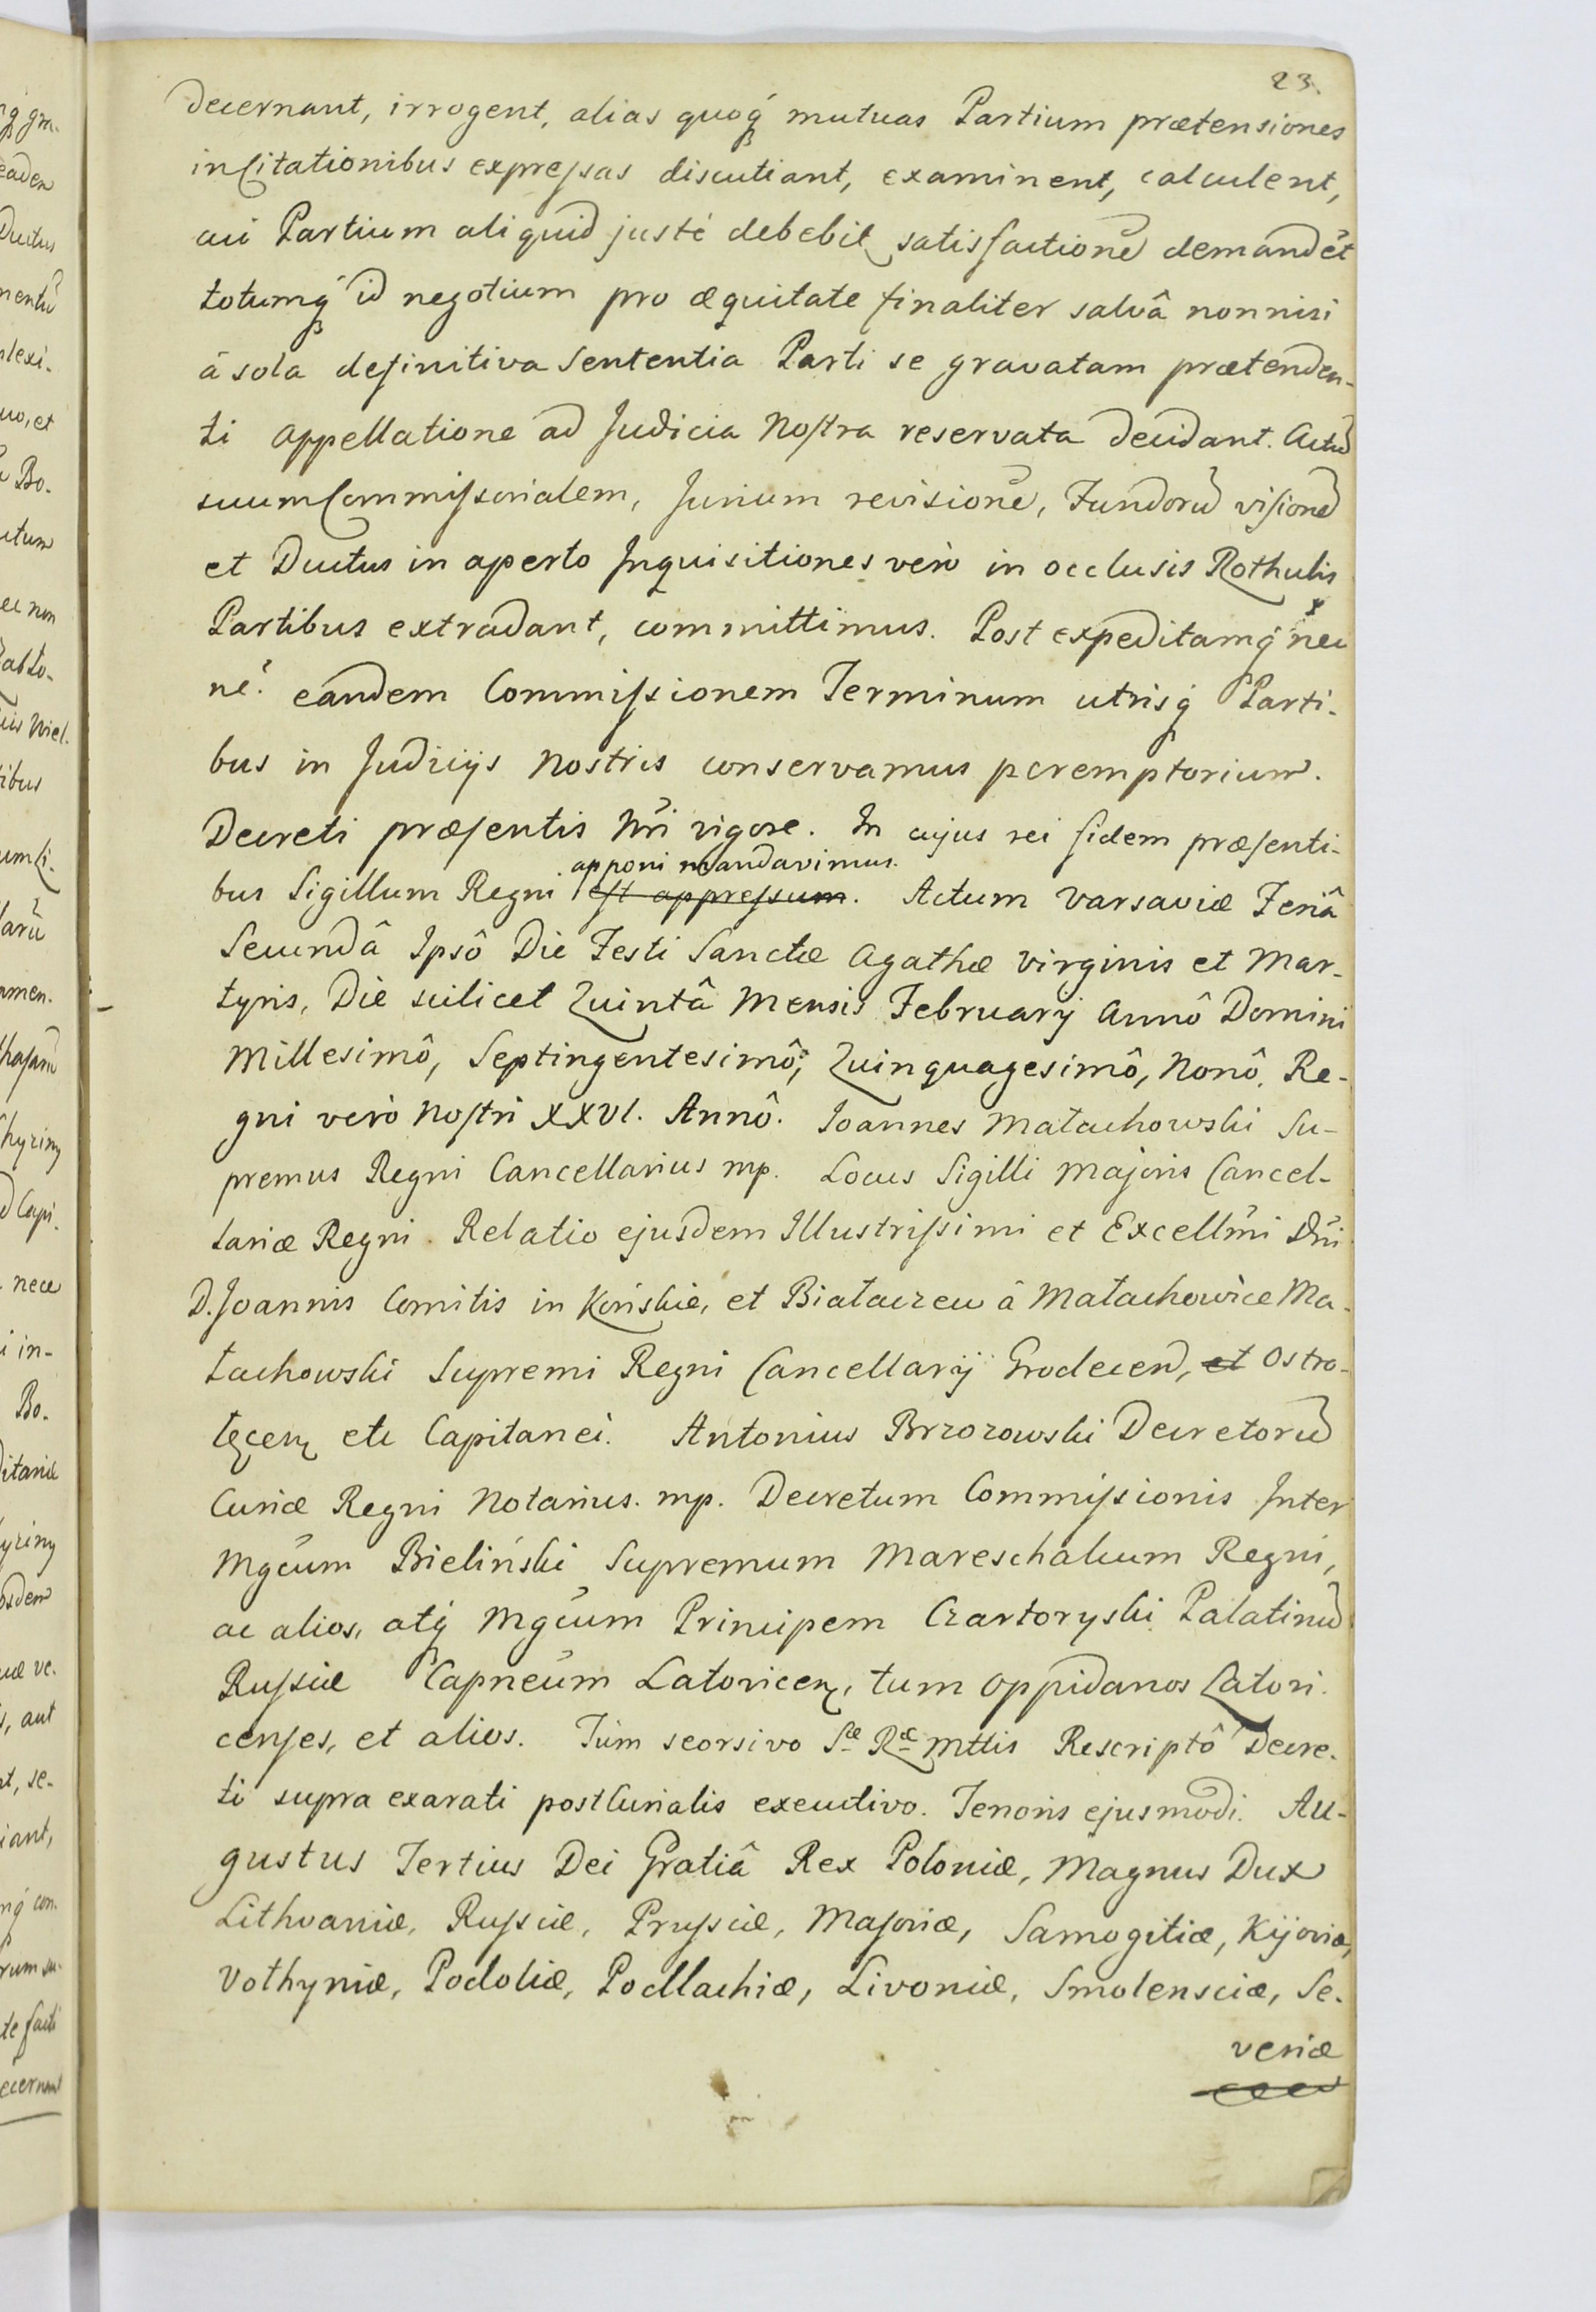 23.
decernant, irrogent, alias quoq́ mutuas Partium prætensiones
in Citationibus expreſsas discutiant, examinent, calculent,
cui Partium aliquid justè debebit satisfactionē demandēt
totumq́ id negotium pro æquitate finaliter salvâ nonnisi
à sola definitiva Sententia Parti se gravatam prætenden-
ti Appellatione ad Judicia Noſtra reservata decidant. Actū
suum Commiſsorialem, Jurium revisionē, Fundorū viſionē
et Ductus in aperto Inquisitiones verò in occlusis Rothulis
Partibus extradant, committimus. Post expeditamq́ nec
nè. eandem Commiſsionem Terminum utrisq́ Parti-
bus in Judicijs Nostris conservamus peremptorium.
Decreti præſentis Nr̄i vigore. In cujus rei fidem præſenti-
apponi mandavimus.
bus Sigillum Regni eſt appreſsum. Actum Varsaviæ Feriâ
Secundâ Ipsô Die Festi Sanctæ Agathæ Virginis et Mar-
tyris, Die scilicet Quintâ Mensis Februarij Annô Domini
Millesimô, Septingentesimô, Quinquagesimô, Nonô, Re-
gni verò Noſtri XXVI. Annô. Joannes Małachowski Su-
premus Regni Cancellarius mp. Locus Sigilli Majoris Cancel-
lariæ Regni. Relatio ejusdem Illustriſsimi et Excellm̄i Dn̄i
D. Joannis Comitis in Końskie, et Białaczew à Małachowice Ma-
łachowski Supremi Regni Cancellarij Grodecen, et Ostro-
łęcen etc Capitanei. Antonius Brzozowski Decretorū
Curiæ Regni Notarius. mp. Decretum Commiſsionis Inter
Mgc̄um Bieliński Supremum Mareschalcum Regni,
ac alios, atq́ Mgc̄um Principem Czartoryski Palatinū
Ruſsiæ Capnēum Latovicen, tum Oppidanos Latovi-
cenſes, et alios. Tùm seorsivo Sæ Ræ Mttis Rescriptô Decre-
ti supra exarati postCurialis executivo. Tenoris ejusmodi. Au-
gustus Tertius Dei Gratiâ Rex Poloniæ, Magnus Dux
Lithvaniæ, Ruſsiæ, Pruſsiæ, Maſoviæ, Samogitiæ, Kijoviæ,
Volhyniæ, Podoliæ, Podlachiæ, Livoniæ, Smolensciæ, Se-
veriæ